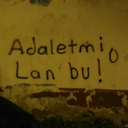 Adaletmi o
Lan bu!